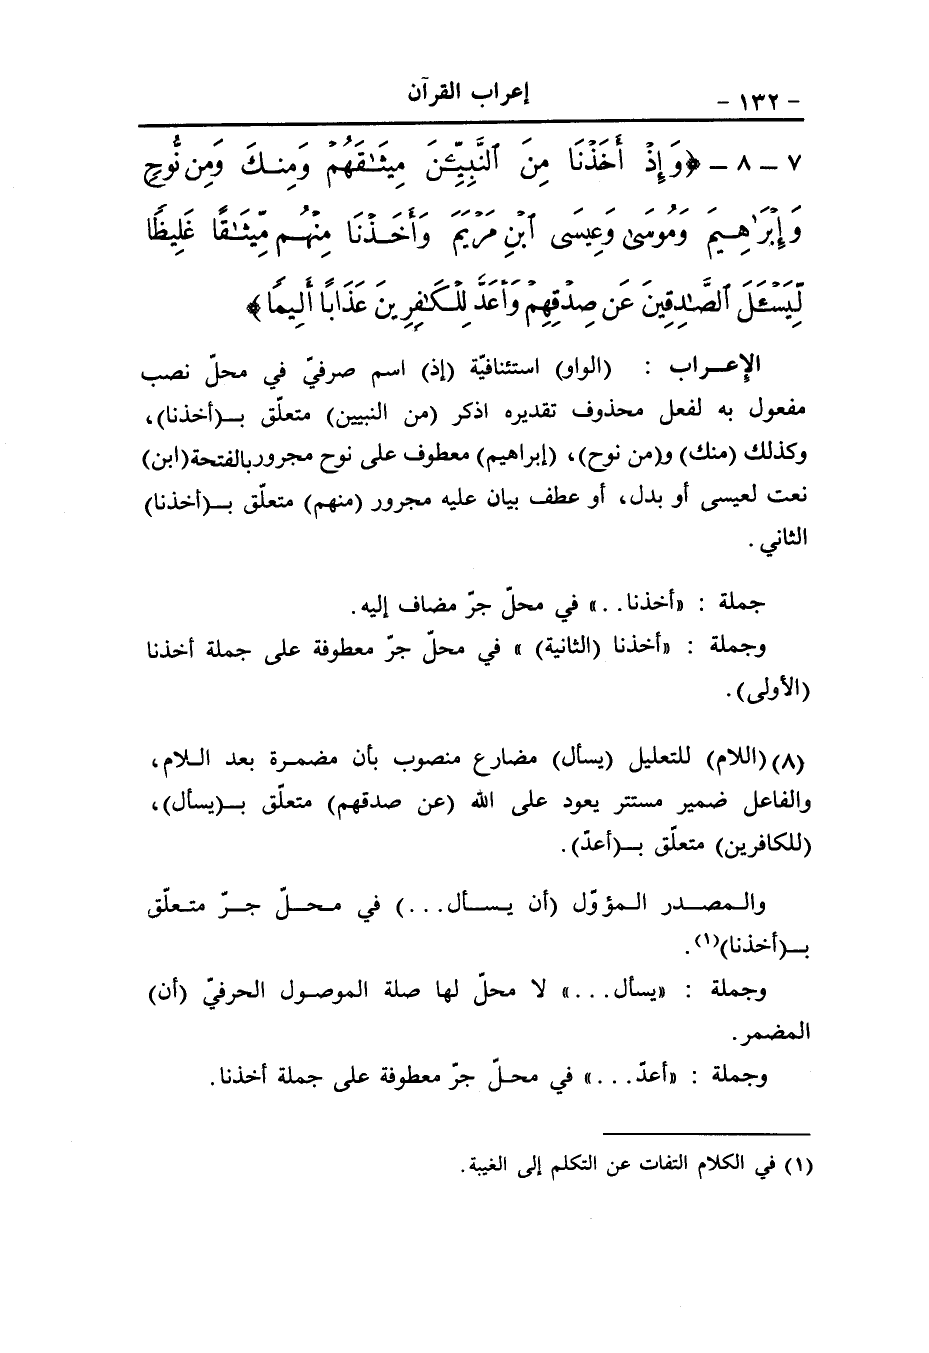 - ١٣٢ - إعراب القرآن
٧ - ٨ - ﴿وَإِذْ أَخَذْنَا مِنَ ٱلنَّبِيِّـۧنَ مِيثَـٰقَهُمْ وَمِنكَ وَمِن نُّوحٍ
وَإِبْرَٰهِيمَ وَمُوسَىٰ وَعِيسَى ٱبْنِ مَرْيَمَ وَأَخَذْنَا مِنْهُم مِّيثَـٰقًا غَلِيظًا
لِّيَسْـَٔلَ ٱلصَّـٰدِقِينَ عَن صِدْقِهِمْ وَأَعَدَّ لِلْكَـٰفِرِينَ عَذَابًا أَلِيمًا﴾
الإعراب : (الواو) استئنافيّة (إذ) اسم صرفيّ في محلّ نصب
مفعول به لفعل محذوف تقديره اذكر (من النبيين) متعلّق بـ(أخذنا)،
وكذلك (منك) و(من نوح)، (إبراهيم) معطوف على نوح مجرور بالفتحة (ابن)
نعت لعيسى أو بدل، أو عطف بيان عليه مجرور (منهم) متعلّق بـ(أخذنا)
الثاني.
جملة : «أخذنا..» في محلّ جرّ مضاف إليه.
وجملة : «أخذنا (الثانية) » في محلّ جرّ معطوفة على جملة أخذنا
(الأولى).
(٨) (اللام) للتعليل (يسأل) مضارع منصوب بأن مضمرة بعد اللام،
والفاعل ضمير مستتر يعود على الله (عن صدقهم) متعلّق بـ(يسأل)،
(للكافرين) متعلّق بـ(أعدّ).
والمصدر المؤوّل (أن يسأل...) في محلّ جرّ متعلّق
بـ(أخذنا)(١).
وجملة : «يسأل...» لا محلّ لها صلة الموصول الحرفيّ (أن)
المضمر.
وجملة : «أعدّ...» في محلّ جرّ معطوفة على جملة أخذنا.
(١) في الكلام التفات عن التكلم إلى الغيبة.